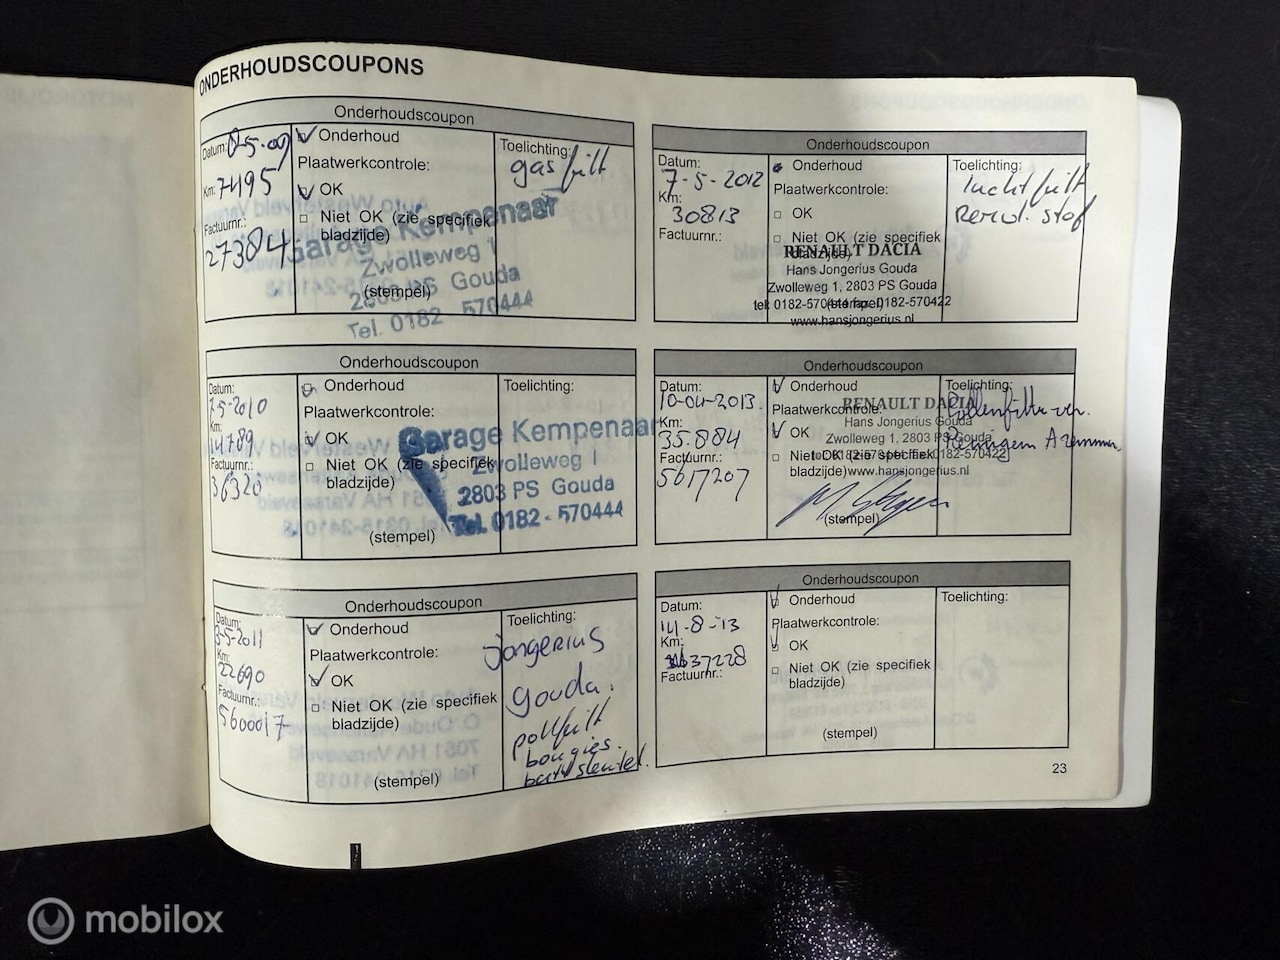 ONDERHOUDSCOUPONS
Onderhoudscoupon
Datum: 8-5-09
Km: 7495
Factuurnr.:
27384
Onderhoud
Plaatwerkcontrole:
OK
Niet OK (zie specifiek
bladzijde)
(stempel)
Toelichting:
gasfilt
Garage Kempenaar
Zwolleweg 1
2803 PS Gouda
Tel. 0182 - 570444
Onderhoudscoupon
Datum:
7-5-2010
Km:
14789
Factuurnr.:
36320
Onderhoud
Plaatwerkcontrole:
OK
Niet OK (zie specifiek
bladzijde)
(stempel)
Toelichting:
Garage Kempenaar
Zwolleweg 1
2803 PS Gouda
Tel. 0182 - 570444
Onderhoudscoupon
Datum:
3-5-2011
Km:
22690
Factuurnr.:
5600017
Onderhoud
Plaatwerkcontrole:
OK
Niet OK (zie specifiek
bladzijde)
(stempel)
Toelichting:
Jongerius
Gouda.
pollfilt
bougies.
batt sleutel.
Onderhoudscoupon
Datum:
7-5-2012
Km:
30813
Factuurnr.:
Onderhoud
Plaatwerkcontrole:
OK
Niet OK (zie specifiek
bladzijde)
(stempel)
Toelichting:
lucht filt
Remvl. stof
RENAULT DACIA
Hans Jongerius Gouda
Zwolleweg 1, 2803 PS Gouda
tel: 0182-570444 fax. 0182-570422
www.hansjongerius.nl
Onderhoudscoupon
Datum:
10-04-2013.
Km:
35.884
Factuurnr.:
5617207
Onderhoud
Plaatwerkcontrole:
OK
Niet OK (zie specifiek
bladzijde)
(stempel)
Toelichting:
Pollenfilter ver.
Reinigen
RENAULT DACIA
Hans Jongerius Gouda
Zwolleweg 1, 2803 PS Gouda
0182-570444 0182-570422
www.hansjongerius.nl
Onderhoudscoupon
Datum:
14-8-13
Km:
37228
Factuurnr.:
Onderhoud
Plaatwerkcontrole:
OK
Niet OK (zie specifiek
bladzijde)
(stempel)
Toelichting:
23
mobilox